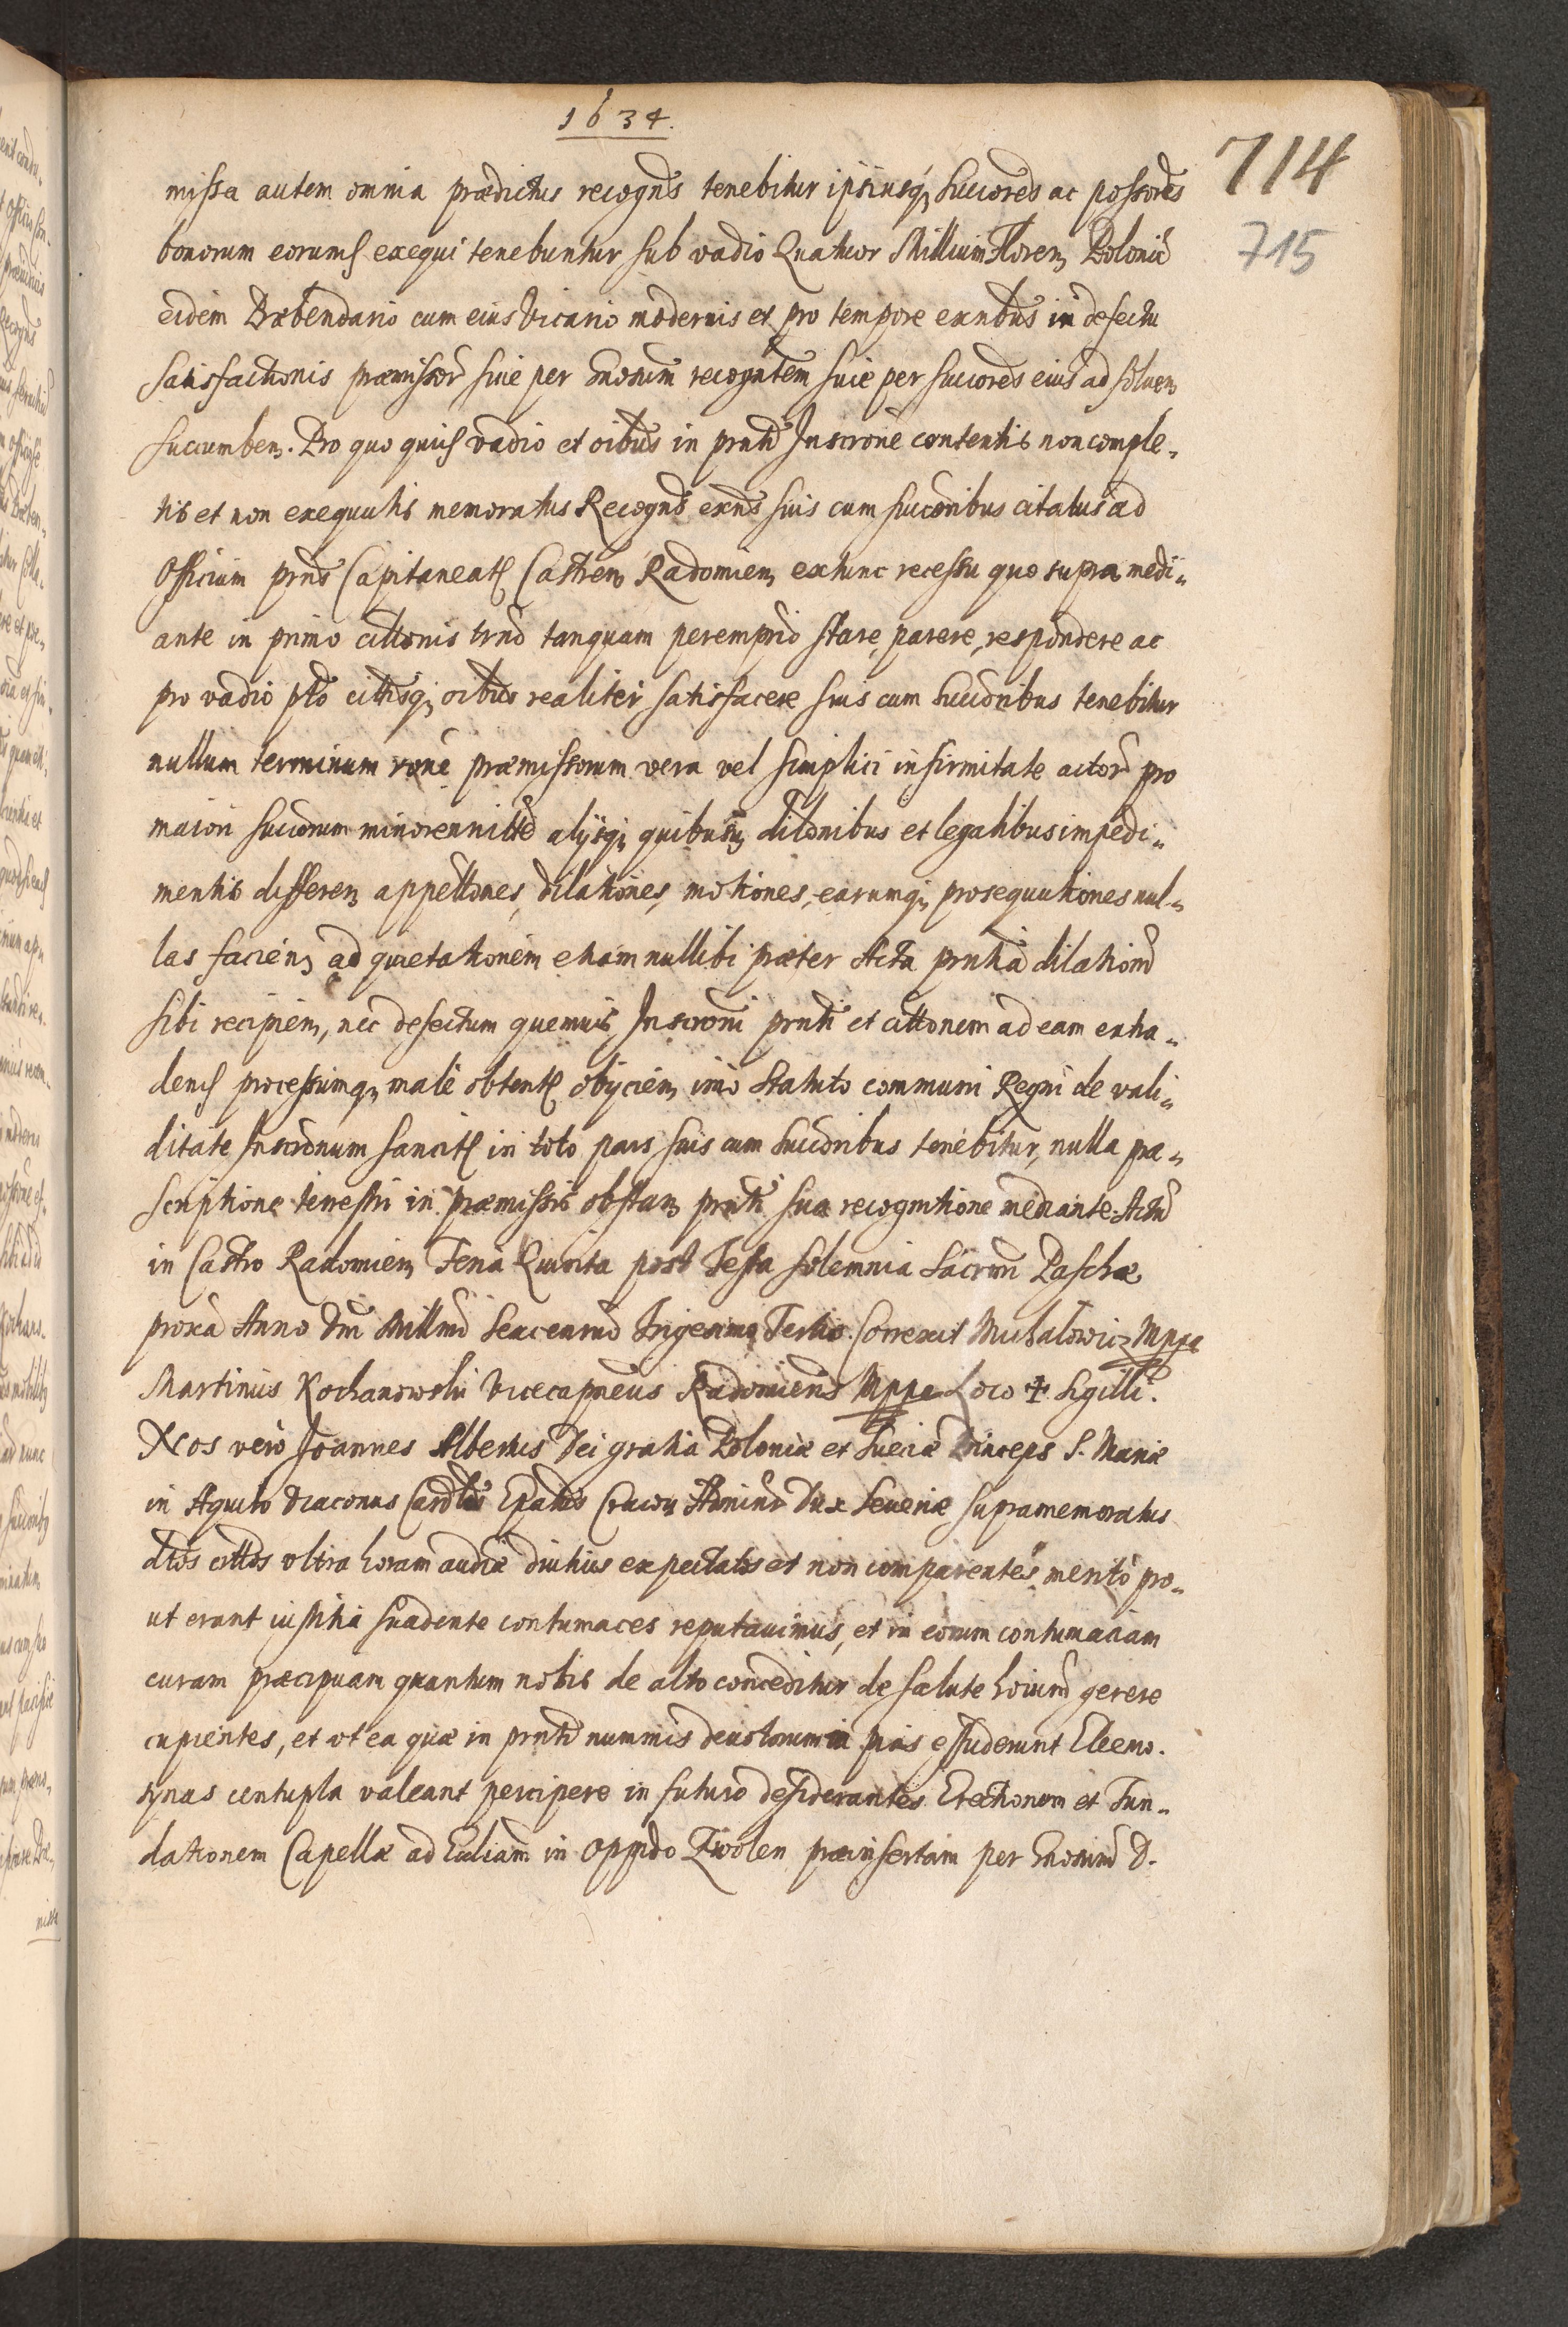 1634.
714
715
missa autem omnia prædictus recogns tenebitur ipsiusq; succores ac possores
bonorum eorum exequi tenebuntur sub vadio Quatuor Millium Floren Polonic
eidem Præbendario cum eius Vicario modernis et pro tempore exntbus in defectu
satisfactionis præmissor siue per Gnosum recognten siue per succores eius ad soluen
succumben. Pro quo quid vadio et oibus in prnti Inscrone contentis non comple-
tis et non exequutis memoratus Recogns exns suis cum succoribus citatus ad
Officium prns Capitaneat Castren Radomien extunc recessu quo supra medi-
ante in primo cittonis trno tanquam peremprio stare, parere, respondere ac
pro vadio pto cittisq; oibus realiter satisfacere suis cum succoribus tenebitur
nullum terminum rone præmissorum vera vel simplici infirmitate actor pro
maiori succorum minorennitte alijsq; quibusuis dilonibus et legalibus impedi-
mentis differen appellones, dilationes, motiones, earumq; prosequutiones nul-
las facien, ad quietationem etiam nullibi præter Acta prntia dilationem
sibi recipien, nec defectum quemuis Inscroni prnti et cittonem ad eam extra-
dend processumq; male obtent obijcien imo statuto communi Regni de vali-
ditate Inscronum sancit in toto pars suis cum succoribus tenebitur, nulla præ-
scriptione terrestri in præmissis obstan, prnti sua recognitione mediante. Actum
in Castro Radomien Feria Quinta post Festa solemnia Sacrum Paschæ
proxa Anno Dni Millmo Sexcenmo Trigesimo Tertio. Correxit Michalowicz Mppa
Martinus Kochanowski Vicecapneus Radomiens Mppa Loco ✝ Sigilli.
Nos vero Joannes Albertus Dei gratia Poloniæ et Sueciæ Princeps S. Mariæ
in Aquiro diaconus Cardlis Epatus Cracou Adminr Dux Seueriæ supramemoratus
dtos cittos vltra horam audiæ diutius expectatos et non comparentes merito pro-
ut erant iustitia suadente contumaces reputauimus, et in eorum contumaciam
curam præcipuam quantum nobis de alto conceditur de salute hoium gerere
cupientes, et vt ea quæ in prnti nummis deuotorum in pias effuderunt Eleemo-
synas centupla valeant percipere in futuro desiderantes Erectionem et Fun-
dationem Capellæ ad Eccliam in oppido Zwolen præinsertam per Gnosum D.